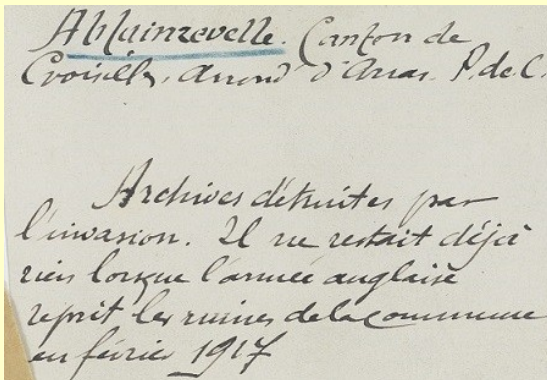 Ablainzevelle. Canton de
Croisilles, Arrond d'Arras. P. de C.
Archives détruites par
l'invasion. Il ne restait déjà
rien lorsque l'armée anglaise
reprit les ruines de la commune
en février 1917